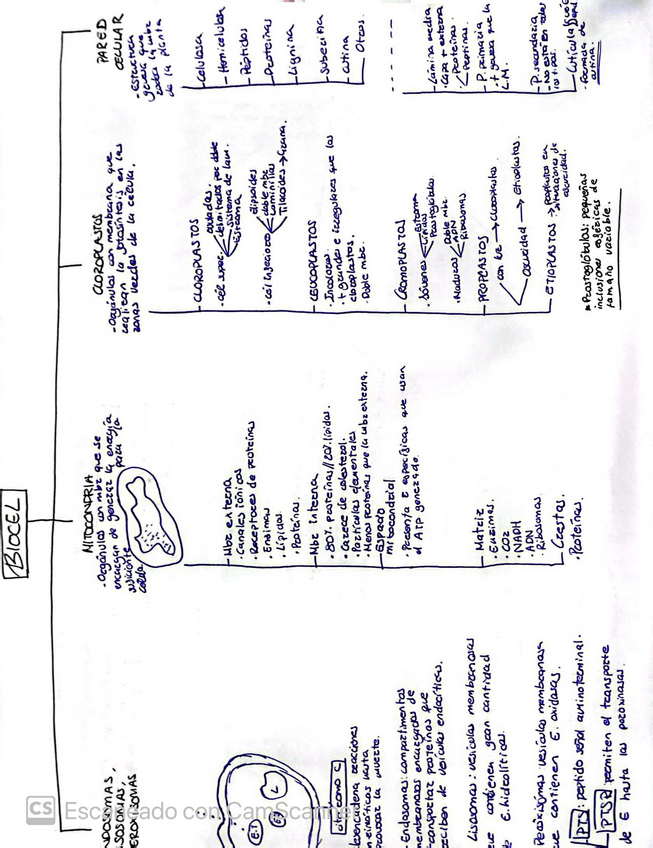 BIOCEL
PARED
CELULAR
- Estructura
de la planta
- Celulosa
- Hemicelulosa
- Péptidos
- Proteínas
- Lignina
- Suberina
- Cutina
- Otros.
- Lámina media
· Capa + externa
Proteínas.
Pectinas.
- P. primaria
+ gruesa que la
L.M.
- P. secundaria
- No está en todos
los tipos.
· Formada de
cutina.
CLOROPLASTOS
- Orgánulos con membrana que
realizan la fotosíntesis en las
zonas verdes de la célula.
CLOROPLASTOS
Sistema de lam.
Estroma
elipsoides
doble mbr.
Laminillas
Tilacoides → Grana.
LEUCOPLASTOS
· Incoloros.
· + grandes e irregulares que los
cloroplastos.
· Doble mbr.
CROMOPLASTOS
· Jóvenes
Estroma
Plastoglóbulos
· Maduros
Doble mbr.
ADN
Ribosomas
PROPLASTOS
con luz → Cloroplastos
oscuridad → Etioplastos.
ETIOPLASTOS → proplastos en
situaciones de
oscuridad.
* Plastoglóbulos: pequeñas
inclusiones esféricas de
tamaño variable.
MITOCONDRIA
- Orgánulos con mbr que se
encargan de generar la energía
suficiente para la
célula
- Mbr externa
· Canales iónicos
· Receptores de proteínas
· Enzimas
· Lípidos
· Proteínas.
- Mbr Interna
· 80% proteínas // 20% lípidos.
· Carece de colesterol.
· Partículas elementales
· Menos proteínas que la mbr externa.
- Espacio
mitocondrial
· Presencia E específicas que usan
el ATP generado.
- Matriz
· Enzimas.
· CO2
· NADH
· ADN
· Ribosomas.
- Crestas.
· Proteínas.
ENDOSOMAS,
LISOSOMAS,
PEROXISOMAS
E.1
E.2
L
citocromo C
desencadena reacciones
enzimáticas hasta
provocar la muerte.
- Endosomas: compartimentos
membranosos encargados de
transportar proteínas que
reciben de vesículas endocíticas.
Lisosomas: vesículas membranosas
que contienen gran cantidad
de E. hidrolíticas.
Peroxisomas: vesículas membranosas
que contienen E. oxidasas.
PTS: péptido señal aminoterminal.
PTSR: permiten el transporte
de E hasta los peroxisomas.
CS Escaneado con CamScanner